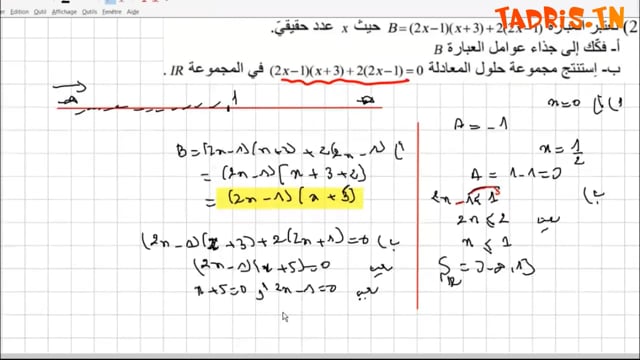 Presse-papiers
Affichage
Outils
TADRIS.TN
2) نعتبر العبارة B=(2x−1)(x+3)+2(2x−1) حيث x عدد حقيقيّ.
أ- فكّك إلى جذاء عوامل العبارة B
ب- إستنتج مجموعة حلول المعادلة (2x−1)(x+3)+2(2x−1)=0 في المجموعة IR .
1
B=(2x−1)(x+3)+2(2x−1) (أ
=(2x−1)(x+3+2)
=(2x−1)(x+5)
(2x−1)(x+3)+2(2x+1)=0 (ب
(2x−1)(x+5)=0 يعني
x+5=0 أو 2x−1=0 يعني
x=0 (أ (1
A=−1
x=1/2
A=1−1=0
2x−1≤1 (ب
2x≤2 يعني
x≤1
S_IR=]−∞,1]